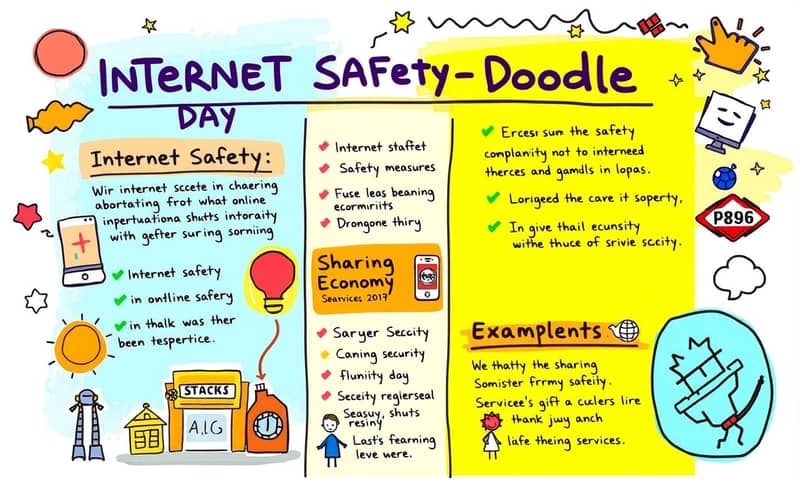 INTERNET SAFety-Doodle
DAY
Internet Safety:
Wir internet sccete in chaering
abortating frot what online
inpertuationa shutts intoraity
with gefter suring sorniing
Internet safety
in ontline safery
in thalk was ther
been tespertice.
STACKS
A.I.G
Internet staffet
Safety measures
Fuse leas beaning
ecormiriits
Drongone thiry
Sharing
Economy
Searvices 2017
Saryer Seccity
Caning security
fluniity day
Seceity regierseal
Seasuy, shuts
resiny
Last's fearning
leve were.
Ercesi sum the safety
complanity not to interneed
therces and gamdls in lopas.
Lorigeed the care it soperty,
In give thail ecunsity
withe thuce of srivie sccity.
Examplents
We thatty the sharing
Somister frrmy safeily.
Servicee's gift a culers lire
thank juuy anch
lafe theing services.
P896